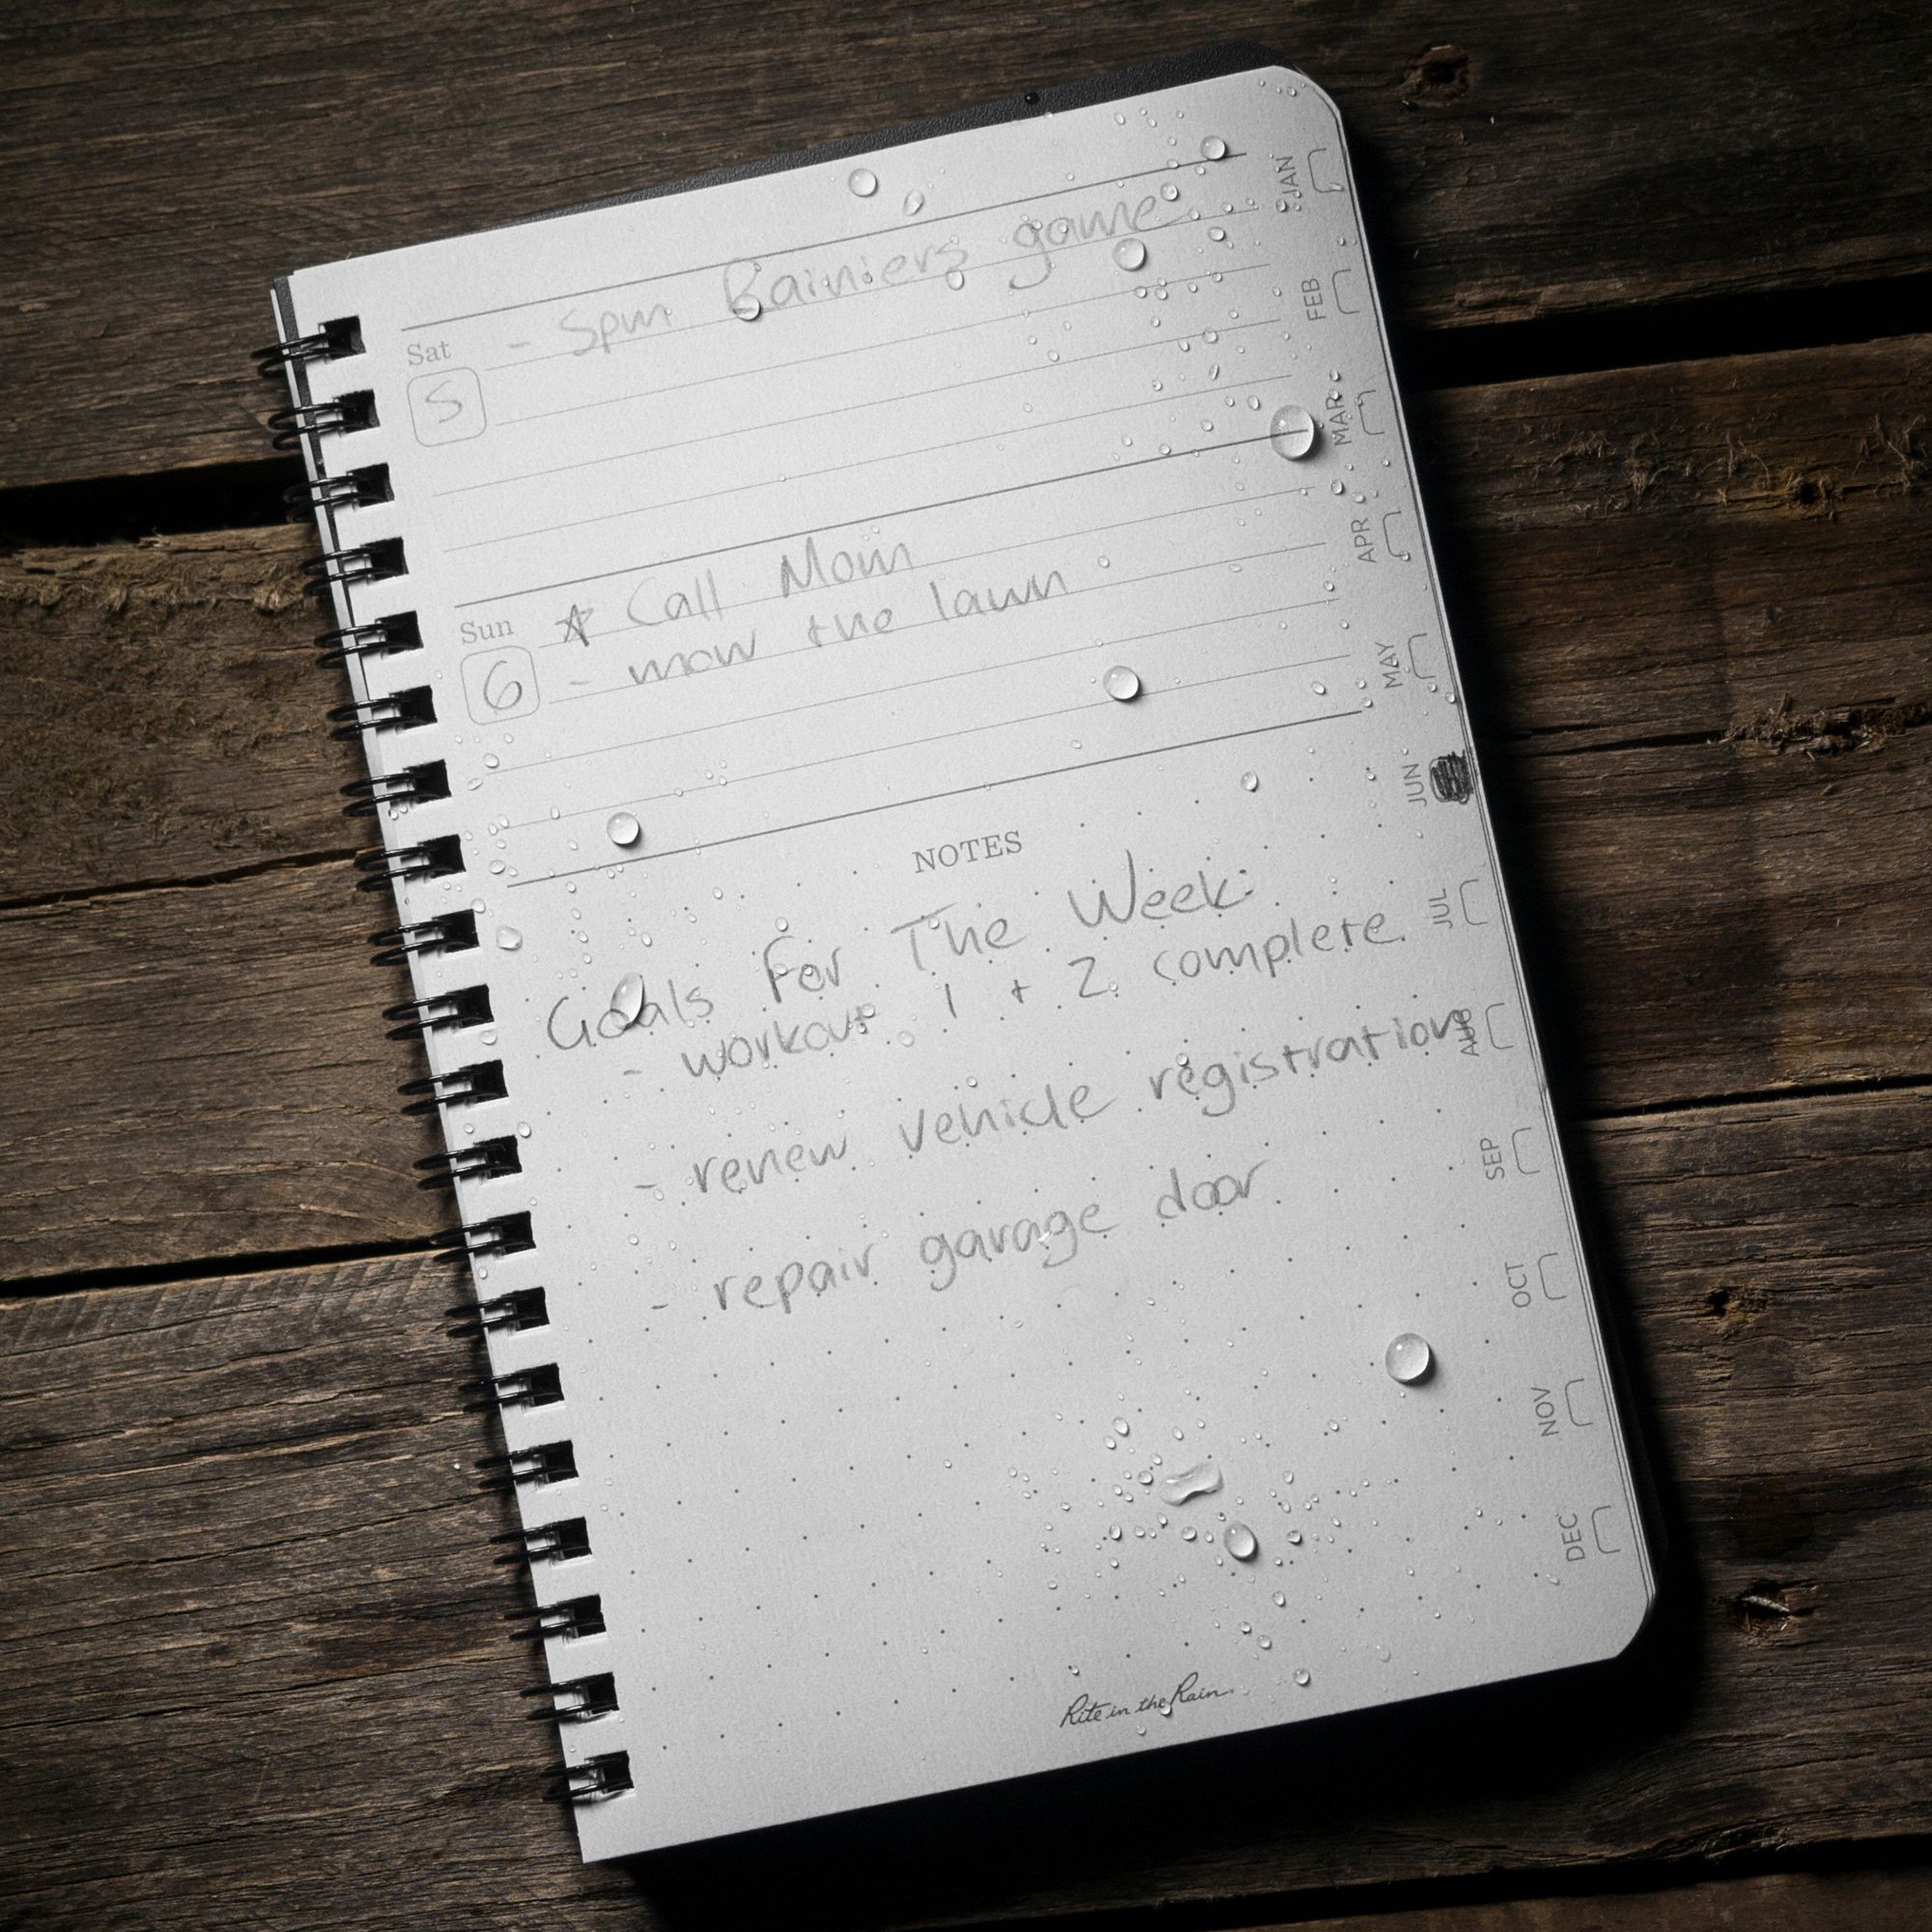 Sat - 5pm Rainiers game
5
Sun ☆ Call Mom
6 - mow the lawn
NOTES
Goals For The Week:
- workout 1 + 2 complete
- renew vehicle registration
- repair garage door
Rite in the Rain
JAN
FEB
MAR
APR
MAY
JUN
JUL
AUG
SEP
OCT
NOV
DEC